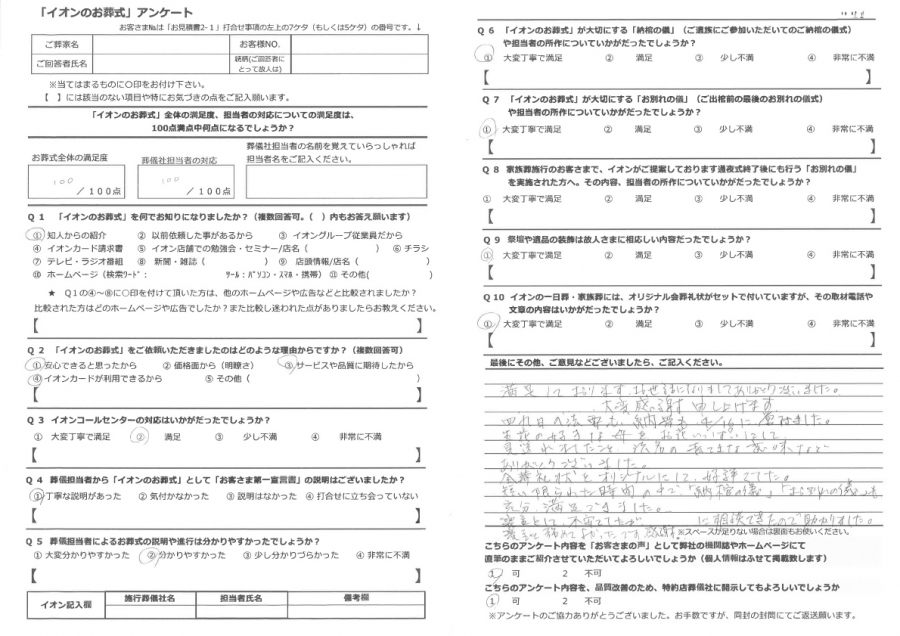 「イオンのお葬式」アンケート
お客さま№は「お見積書2-１」打合せ事項の左上の7ケタ（もしくは5ケタ）の番号です。↓
ご葬家名
お客様NO.
ご回答者氏名
続柄(ご回答者にとって故人は)
※当てはまるものに〇印をお付け下さい。
【　】には該当のない項目や特にお気づきの点をご記入願います。
「イオンのお葬式」全体の満足度、担当者の対応についての満足度は、
100点満点中何点になるでしょうか？
お葬式全体の満足度
葬儀社担当者の対応
葬儀社担当者の名前を覚えていらっしゃれば
担当者名をご記入ください。
100
／100点
100
／100点
Q 1　「イオンのお葬式」を何でお知りになりましたか？（複数回答可。（　）内もお答え願います）
① 知人からの紹介　② 以前依頼した事があるから　③ イオングループ従業員だから
④ イオンカード請求書　⑤ イオン店舗での勉強会・セミナー/店名（　）　⑥ チラシ
⑦ テレビ・ラジオ番組　⑧ 新聞・雑誌（　）　⑨ 店頭情報/店名（　）
⑩ ホームページ（検索ﾜｰﾄﾞ：　ﾂｰﾙ：ﾊﾟｿｺﾝ・ｽﾏﾎ・携帯）　⑪ その他(　)
★　Q１の④～⑧に〇印を付けて頂いた方は、他のホームページや広告などと比較されましたか？
比較された方はどのホームページや広告でしたか？また比較し迷われた点がありましたらお教えください。
【　】
Q 2　「イオンのお葬式」をご依頼いただきましたのはどのような理由からですか？（複数回答可）
①安心できると思ったから　② 価格面から（明瞭さ）　③サービスや品質に期待したから
④イオンカードが利用できるから　⑤ その他（　）
【　】
Q 3　イオンコールセンターの対応はいかがだったでしょうか？
①　大変丁寧で満足　②　満足　③　少し不満　④　非常に不満
【　】
Q 4　葬儀担当者から「イオンのお葬式」として「お客さま第一宣言書」の説明はございましたか？
①丁寧な説明があった　② 気付かなかった　③ 説明はなかった　④ 打合せに立ち会っていない
【　】
Q 5　葬儀担当者によるお葬式の説明や進行は分かりやすかったでしょうか？
① 大変分かりやすかった　②分かりやすかった　③ 少し分かりづらかった　④ 非常に不満
【　】
イオン記入欄
施行葬儀社名
担当者氏名
備考欄
Q 6　「イオンのお葬式」が大切にする「納棺の儀」（ご遺族にご参加いただいてのご納棺の儀式）
や担当者の所作についていかがだったでしょうか？
①　大変丁寧で満足　②　満足　③　少し不満　④　非常に不満
【　】
Q 7　「イオンのお葬式」が大切にする「お別れの儀」（ご出棺前の最後のお別れの儀式）
や担当者の所作についていかがだったでしょうか？
①　大変丁寧で満足　②　満足　③　少し不満　④　非常に不満
【　】
Q 8　家族葬施行のお客さまで、イオンがご提案しております通夜式終了後にも行う「お別れの儀」
を実施された方へ。その内容、担当者の所作についていかがだったでしょうか？
①　大変丁寧で満足　②　満足　③　少し不満　④　非常に不満
【　】
Q 9　祭壇や遺品の装飾は故人さまに相応しい内容だったでしょうか？
①　大変丁寧で満足　②　満足　③　少し不満　④　非常に不満
【　】
Q 10　イオンの一日葬・家族葬には、オリジナル会葬礼状がセットで付いていますが、その取材電話や
文章の内容はいかがだったでしょうか？
①　大変丁寧で満足　②　満足　③　少し不満　④　非常に不満
【　】
最後にその他、ご意見などございましたら、ご記入ください。
満足しております。お世話になりましてありがとうございました。
大変感謝申し上げます
四九日の法要も、納骨も 4/16に
生花の好きな母を お花いっぱいにして
ありがとうございました。
会葬礼状もオリジナルにして、好評でした。
短い限られた時間の中で「納棺の儀」「お別れの儀」も
充分満足できました。
に相談できたので助かりました。
感謝
※スペースが足りない場合は裏面もお使いください。
こちらのアンケート内容を「お客さまの声」として弊社の機関誌やホームページにて
直筆のままご紹介させていただいてよろしいでしょうか（個人情報はふせて掲載致します）
1　可　2　不可
こちらのアンケート内容を、品質改善のため、特約店葬儀社に開示してもよろしいでしょうか
1　可　2　不可
※アンケートのご協力ありがとうございました。お手数ですが、同封の封筒にてご返送願います。